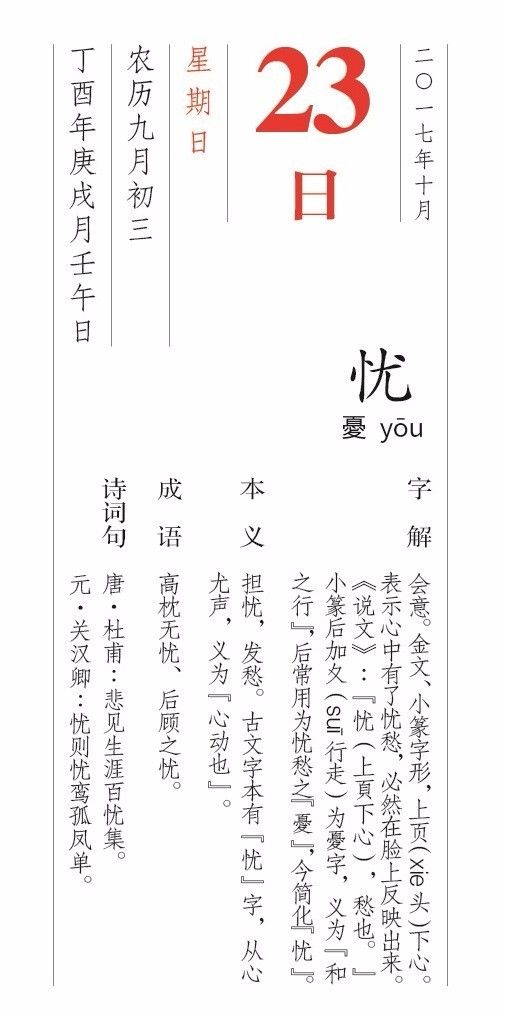 二〇一七年十月
23
日
星期日
农历九月初三
丁酉年庚戌月壬午日
忧
憂 yōu
字解
会意。金文、小篆字形，上页(xié头)下心。
表示心中有了忧愁，必然在脸上反映出来。
《说文》：『忧(上頁下心)，愁也。』
小篆后加夊(suī行走)为憂字，义为『和
之行』，后常用为忧愁之『憂』，今简化『忧』。
本义
担忧，发愁。古文字本有『忧』字，从心
尤声，义为『心动也』。
成语
高枕无忧、后顾之忧。
诗词句
唐·杜甫：悲见生涯百忧集。
元·关汉卿：忧则忧鸾孤凤单。